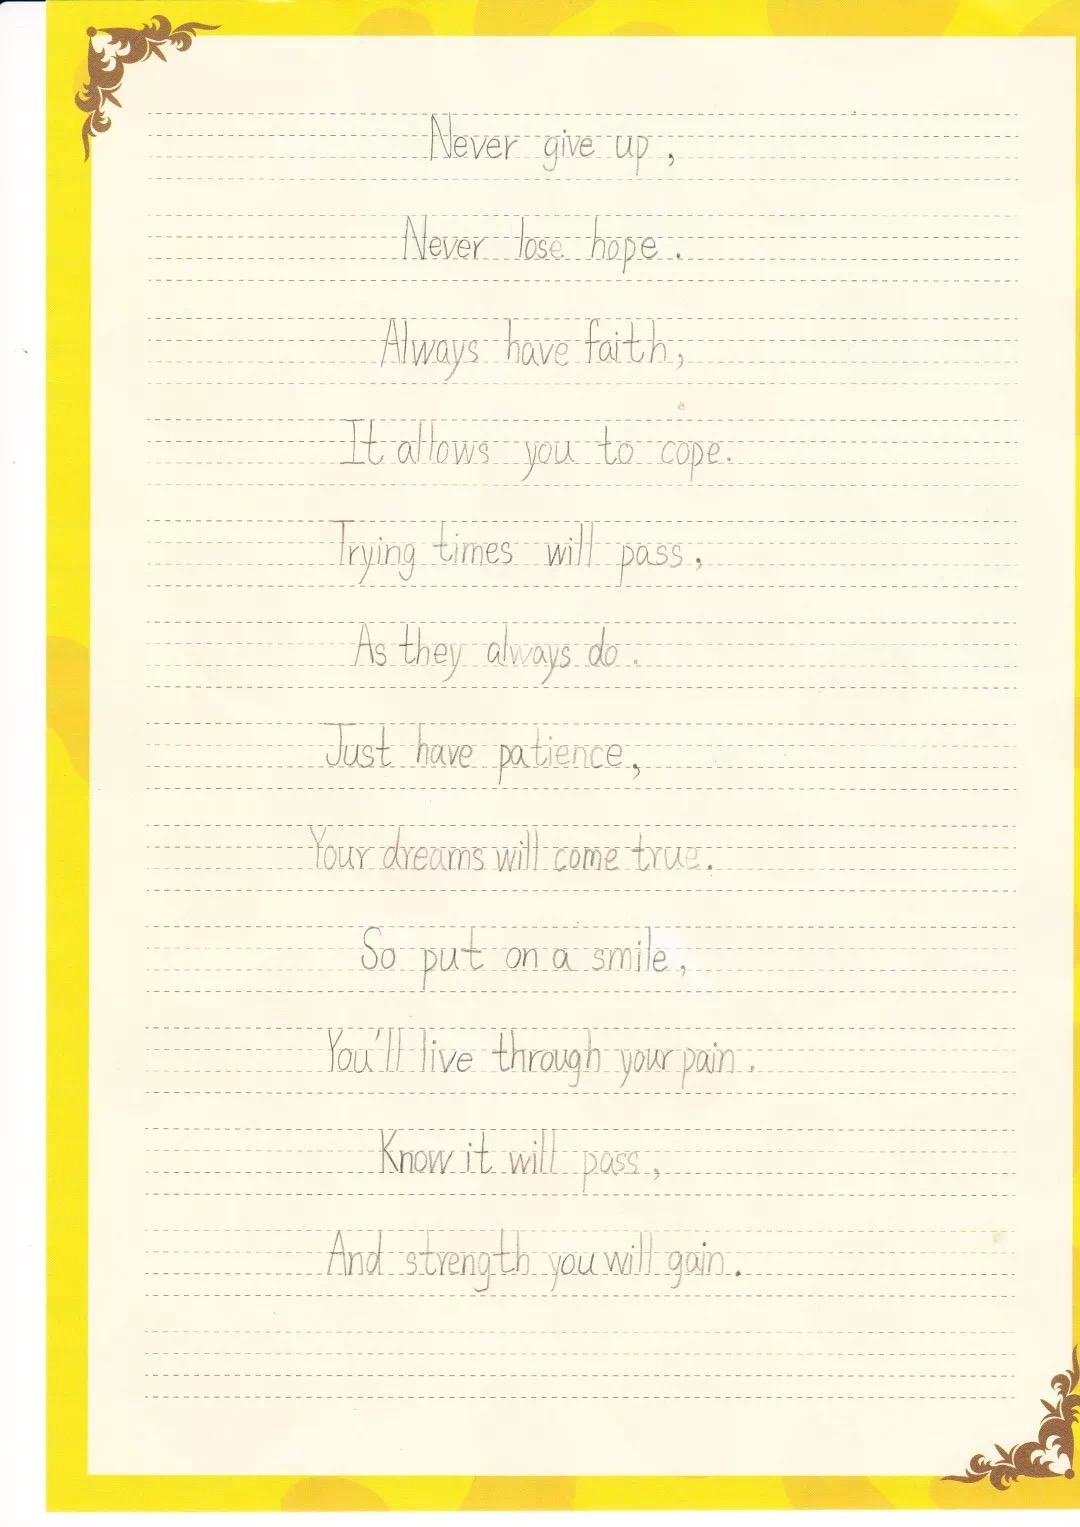 Never give up,
Never lose hope.
Always have faith,
It allows you to cope.
Trying times will pass,
As they always do.
Just have patience,
Your dreams will come true.
So put on a smile,
You'll live through your pain.
Know it will pass,
And strength you will gain.